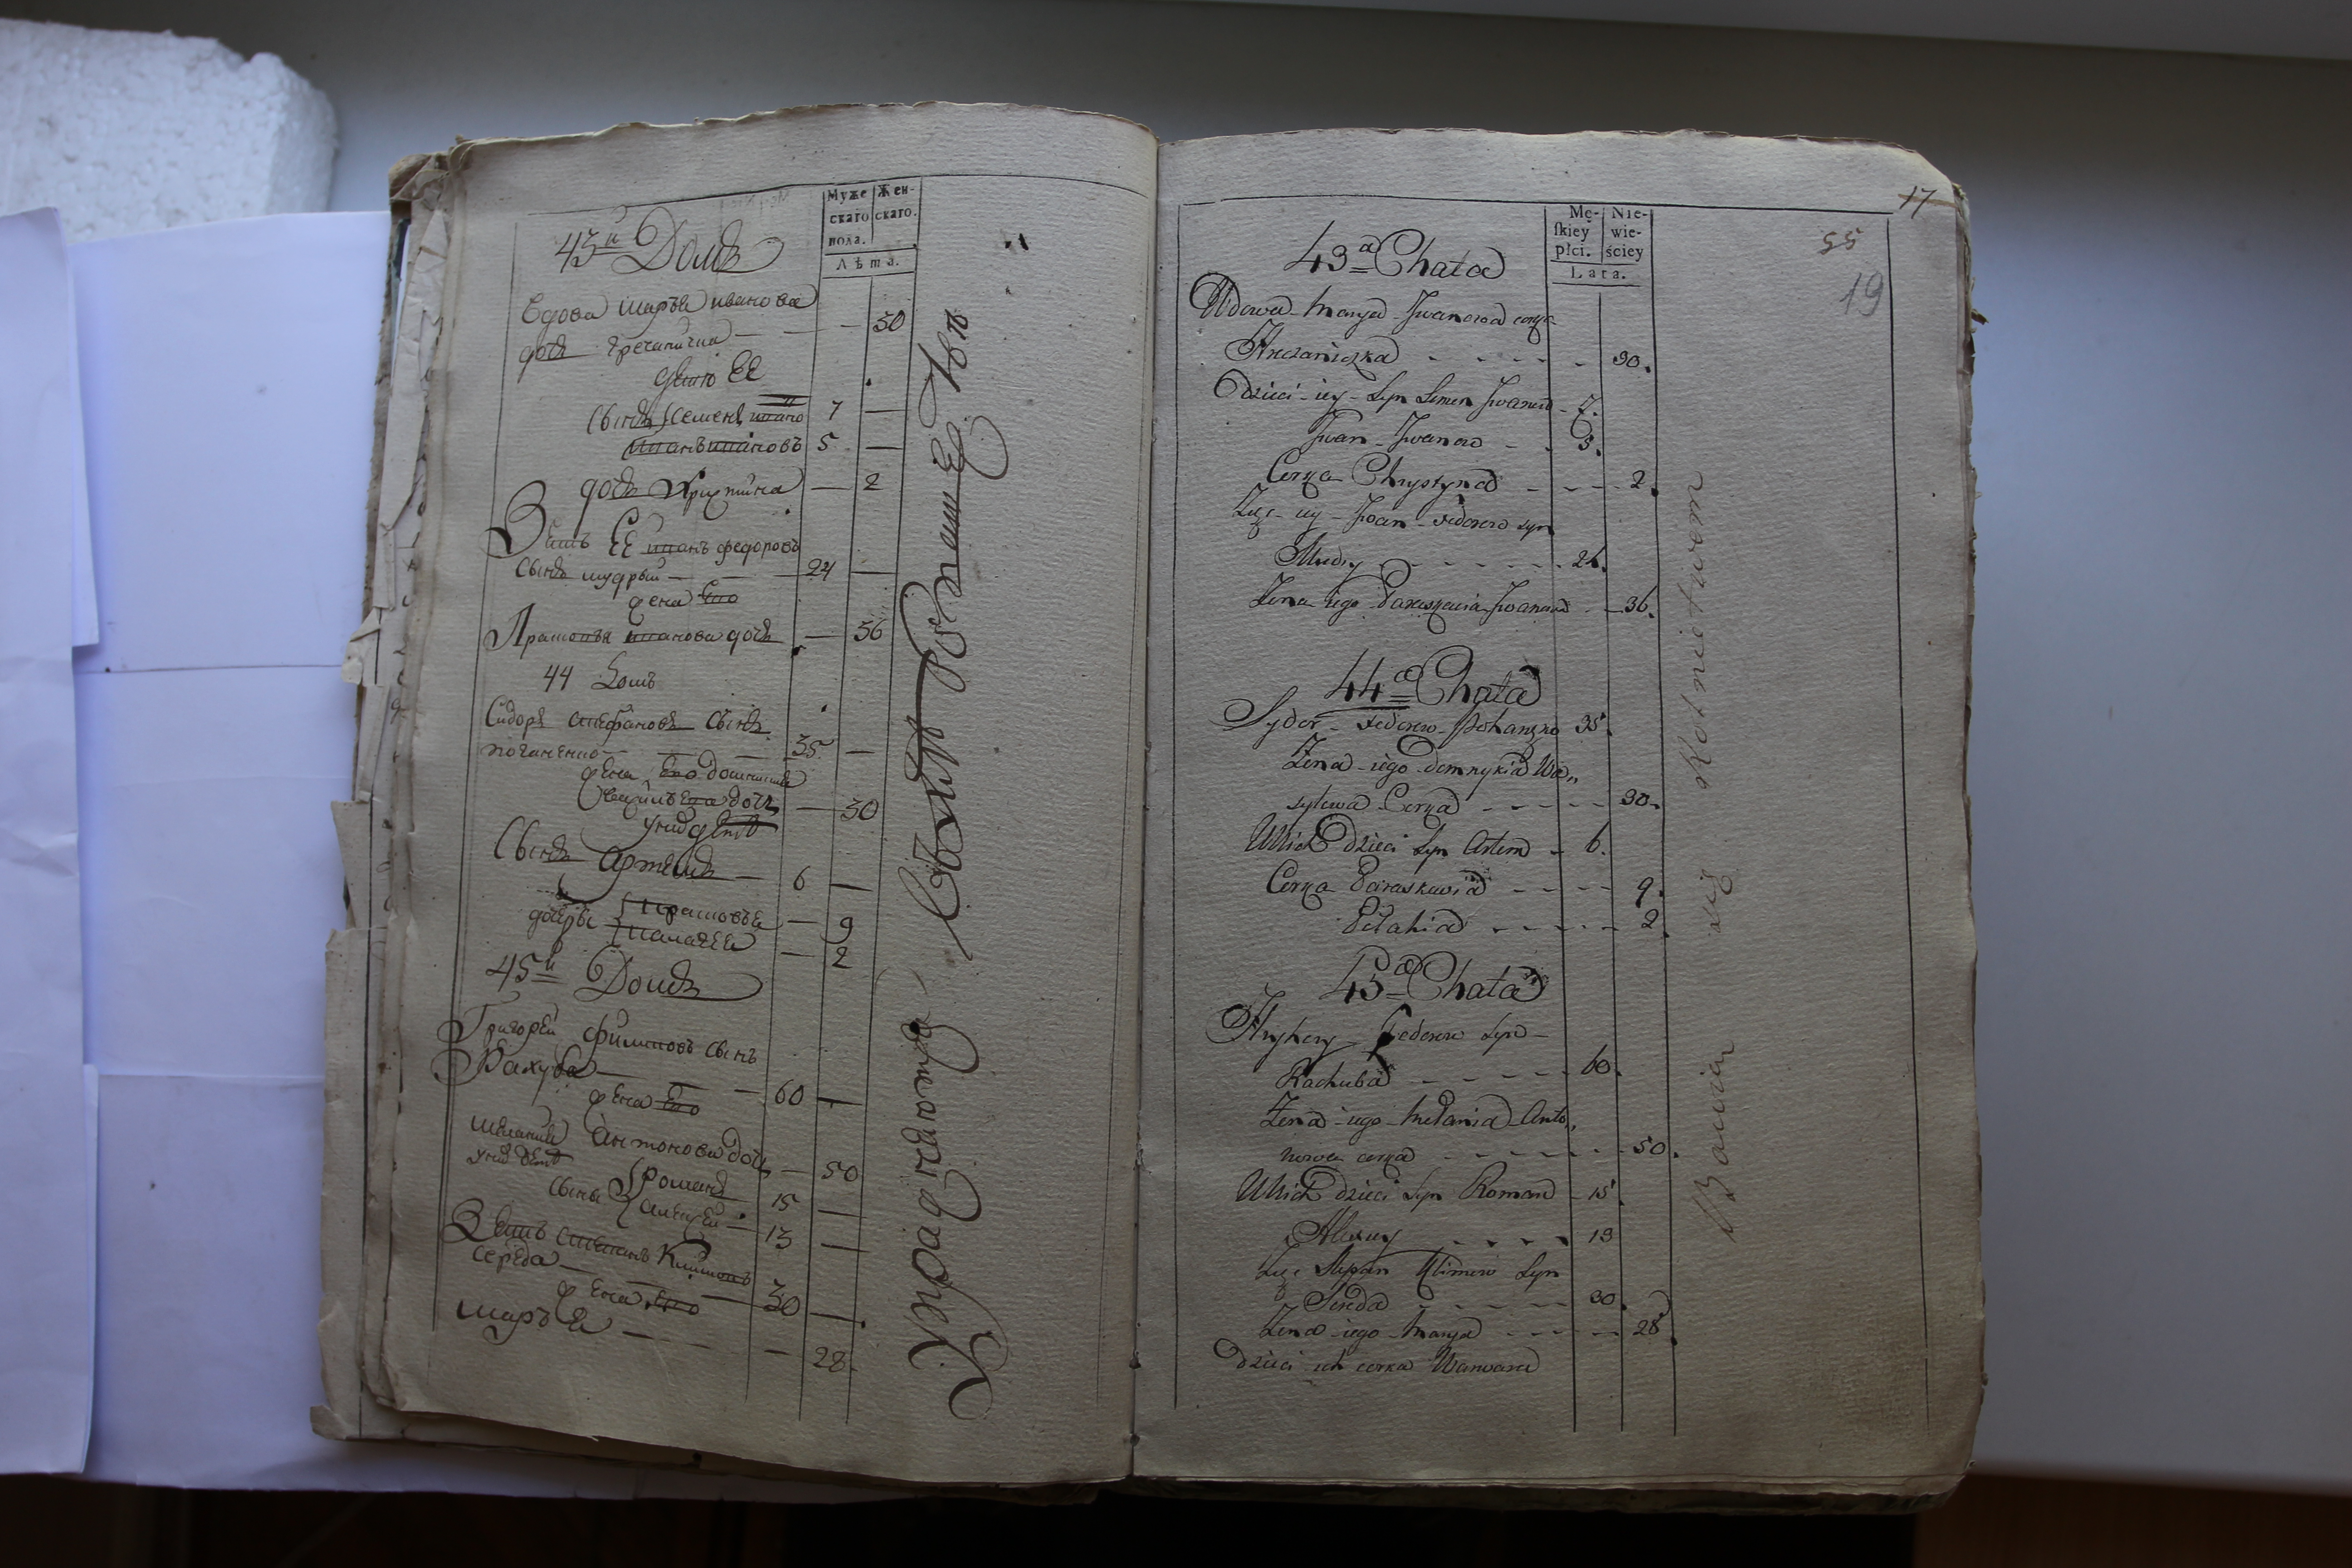 Муже Жен-
скаго скаго.
пола.
Лѣта.
43й Домъ
Вдова марья иванова
дочь гречанична — 30
дети ЕЕ
Сынъ Семенъ ивано 7 —
иванъ ивановъ 5 —
дочь Христина — 2
Зять ЕЕ иванъ федоровъ
сынъ мудрый — 24 —
жена Его
Прасковья иванова дочь — 36
44 Домъ
Сидоръ стефановъ сынъ
поганенко — 35 —
жена Его домникия
Васильева дочь — 30
у них дети
Сынъ Артемъ — 6 —
дочери Парасковья — 9
Палагея — 2
45й Домъ
Григорей Филиповъ сынъ
Рахуба — 60 —
жена Его
мелания Антонова дочь — 50
у них дети
сыны Романъ 15 —
алексей — 13 —
Зять степанъ Климовъ
середа — 30 —
жена Его
марья — 28.
17
55
19
Mę- Nie-
skiey wie-
płci. ściey
Lata.
43a Chata
Wdowa Marya Iwanowa corka
Hreczaniczka 30.
Dzieci iey Syn Semen Iwanow 7.
Iwan Iwanow 5.
Corka Chrystyna 2.
Zięć iey Iwan Fedorow syn
Mudry 24.
Zena iego Paraskewia Iwanowa 36.
44a Chata
Sydor Fedorow Pohanęko 35.
Zena iego Domnykia Wa„
sylowa Corka 30.
U nich dzieci Syn Artem 6.
Corka Paraskewia 9.
Pełahia 2.
45a Chata
Hryhory Fedorow Syn
Rachuba 60.
Zena iego Mełania Anto„
nowa corka 50.
U nich dzieci Syn Roman 15.
Alexey 13
Zięć Stepan Klimow Syn
Sereda 30.
Zena iego Marya 28.
Dzieci ich corka Warwara